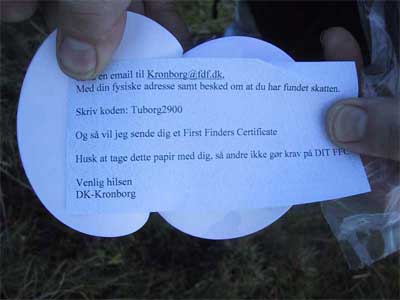 en email til Kronborg@fdf.dk,
Med din fysiske adresse samt besked om at du har fundet skatten.
Skriv koden: Tuborg2900
Og så vil jeg sende dig et First Finders Certificate
Husk at tage dette papir med dig, så andre ikke gør krav på DIT FFC
Venlig hilsen
DK-Kronborg